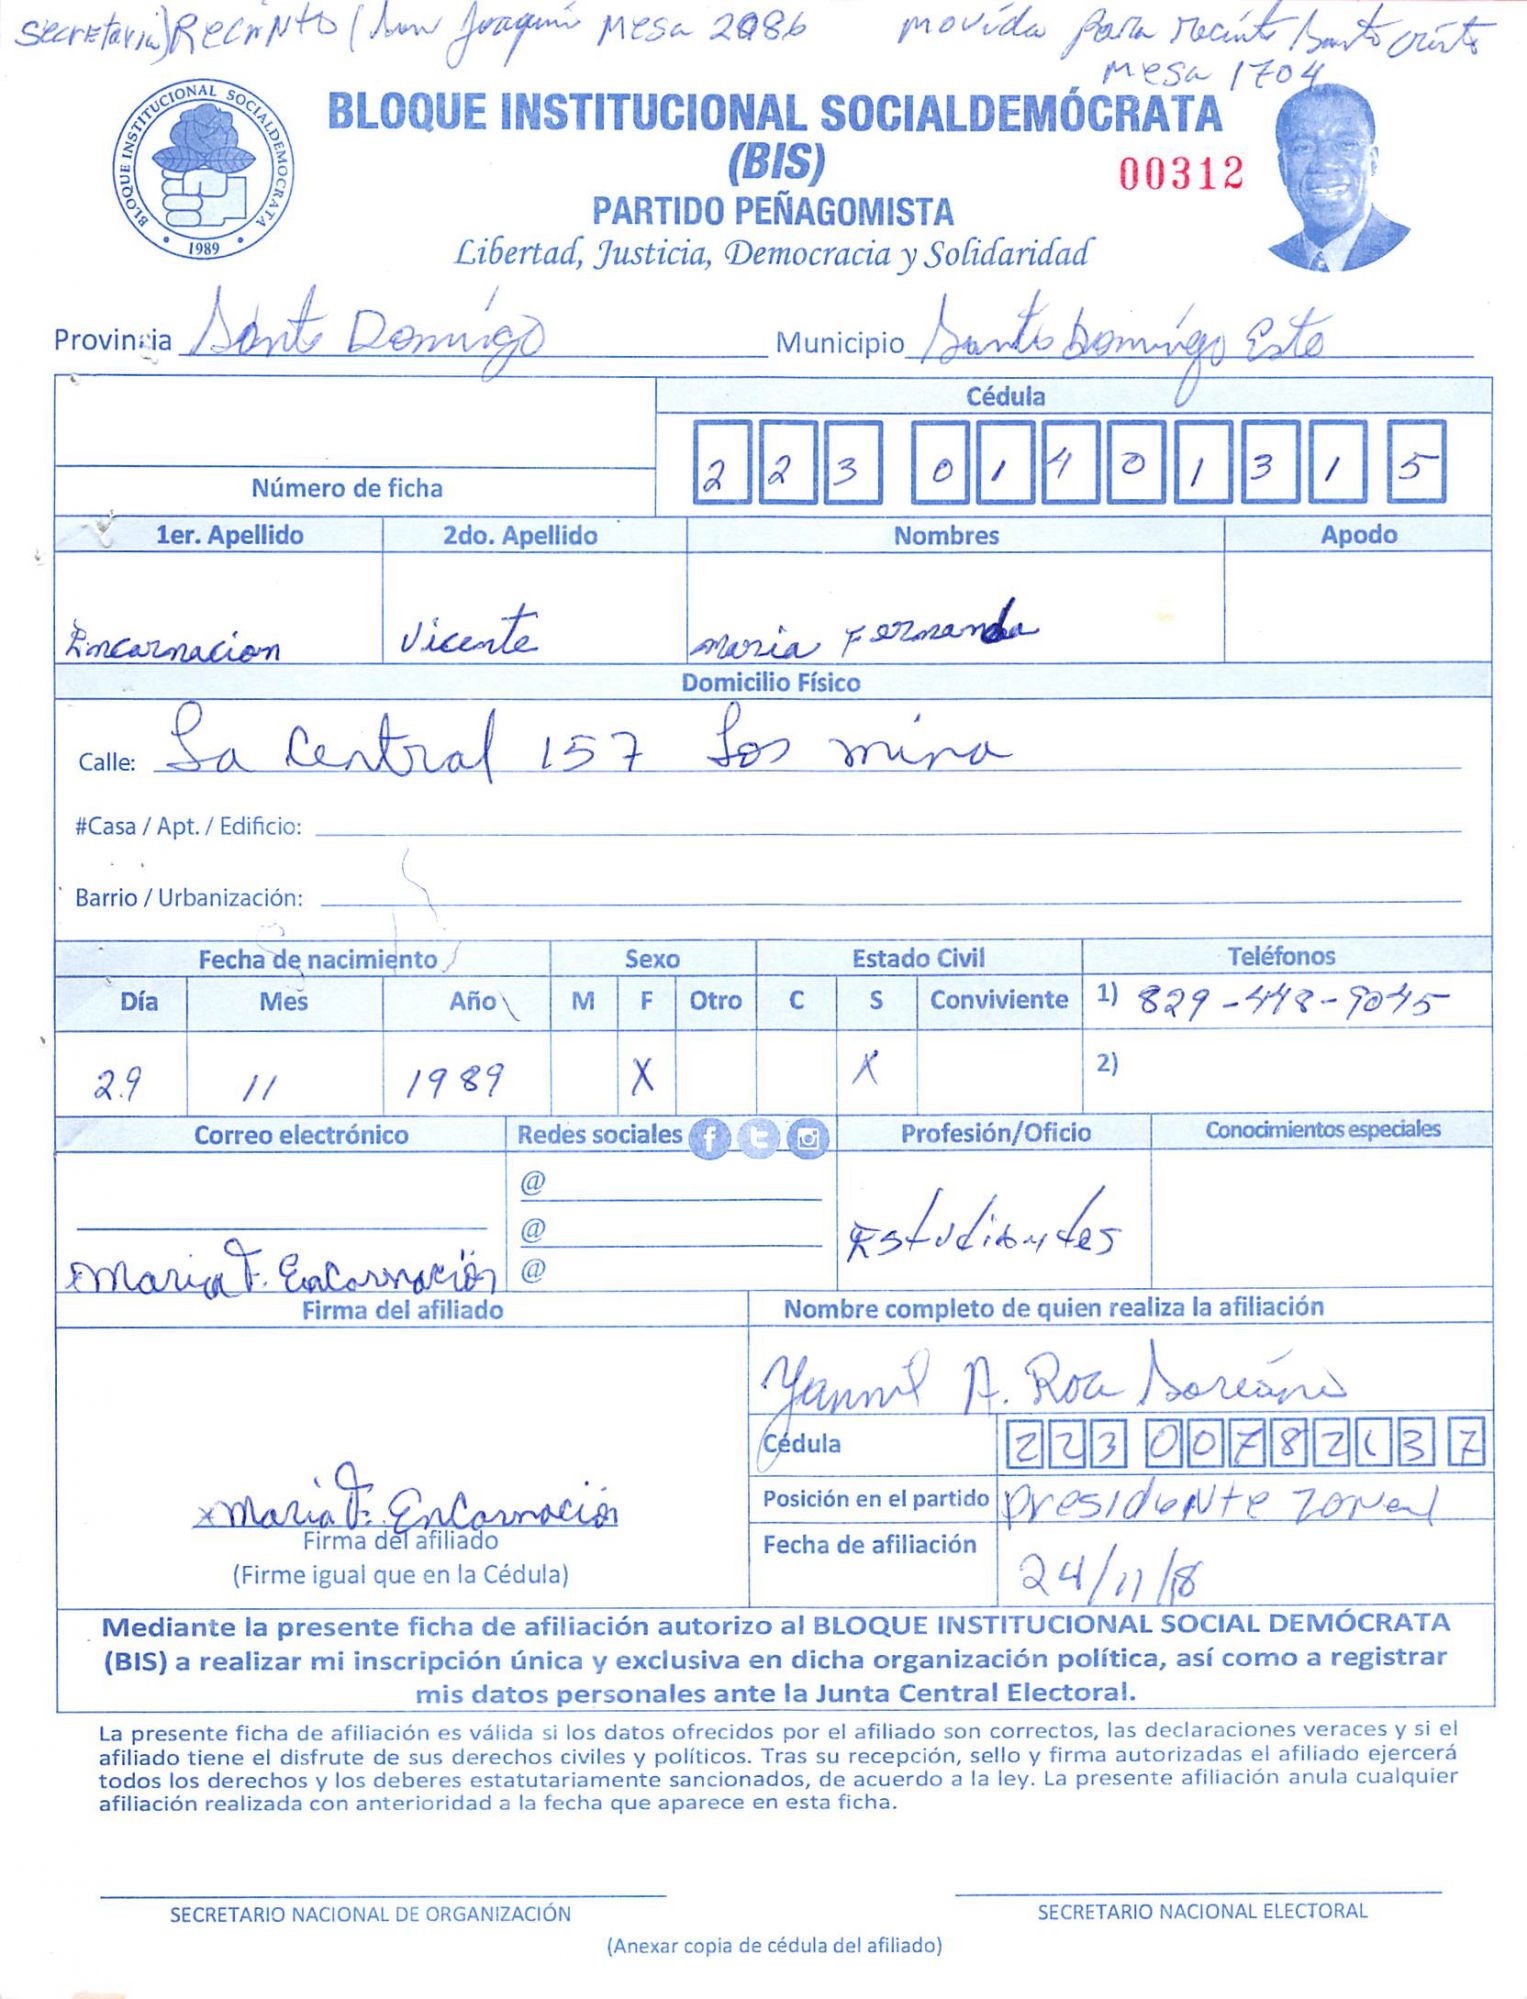 Secretaria) Recinto (San Joaquin Mesa 2086 movida para recinto Santo Cristo
Mesa 1704
BLOQUE INSTITUCIONAL SOCIALDEMOCRATA
1989
BLOQUE INSTITUCIONAL SOCIALDEMÓCRATA
(BIS)
00312
PARTIDO PEÑAGOMISTA
Libertad, Justicia, Democracia y Solidaridad
Provincia Santo Domingo Municipio Santo Domingo Este
Cédula
2 2 3 0 1 4 0 1 3 1 5
Número de ficha
1er. Apellido 2do. Apellido Nombres Apodo
Encarnacion Vicente Maria Fernanda
Domicilio Físico
Calle: La Central 157 Los mina
#Casa / Apt. / Edificio:
Barrio / Urbanización:
Fecha de nacimiento Sexo Estado Civil Teléfonos
Día Mes Año M F Otro C S Conviviente 1) 829-448-9045
29 11 1989 X X 2)
Correo electrónico Redes sociales Profesión/Oficio Conocimientos especiales
@
@
@
Estudiantes
Maria F. Encarnación
Firma del afiliado Nombre completo de quien realiza la afiliación
Yannil A. Roa Soriano
Cédula 2 2 3 0 0 7 8 2 1 3 7
Posición en el partido Presidente zonal
x Maria F. Encarnación
Firma del afiliado
(Firme igual que en la Cédula)
Fecha de afiliación 24/11/18
Mediante la presente ficha de afiliación autorizo al BLOQUE INSTITUCIONAL SOCIAL DEMÓCRATA
(BIS) a realizar mi inscripción única y exclusiva en dicha organización política, así como a registrar
mis datos personales ante la Junta Central Electoral.
La presente ficha de afiliación es válida si los datos ofrecidos por el afiliado son correctos, las declaraciones veraces y si el
afiliado tiene el disfrute de sus derechos civiles y políticos. Tras su recepción, sello y firma autorizadas el afiliado ejercerá
todos los derechos y los deberes estatutariamente sancionados, de acuerdo a la ley. La presente afiliación anula cualquier
afiliación realizada con anterioridad a la fecha que aparece en esta ficha.
SECRETARIO NACIONAL DE ORGANIZACIÓN SECRETARIO NACIONAL ELECTORAL
(Anexar copia de cédula del afiliado)